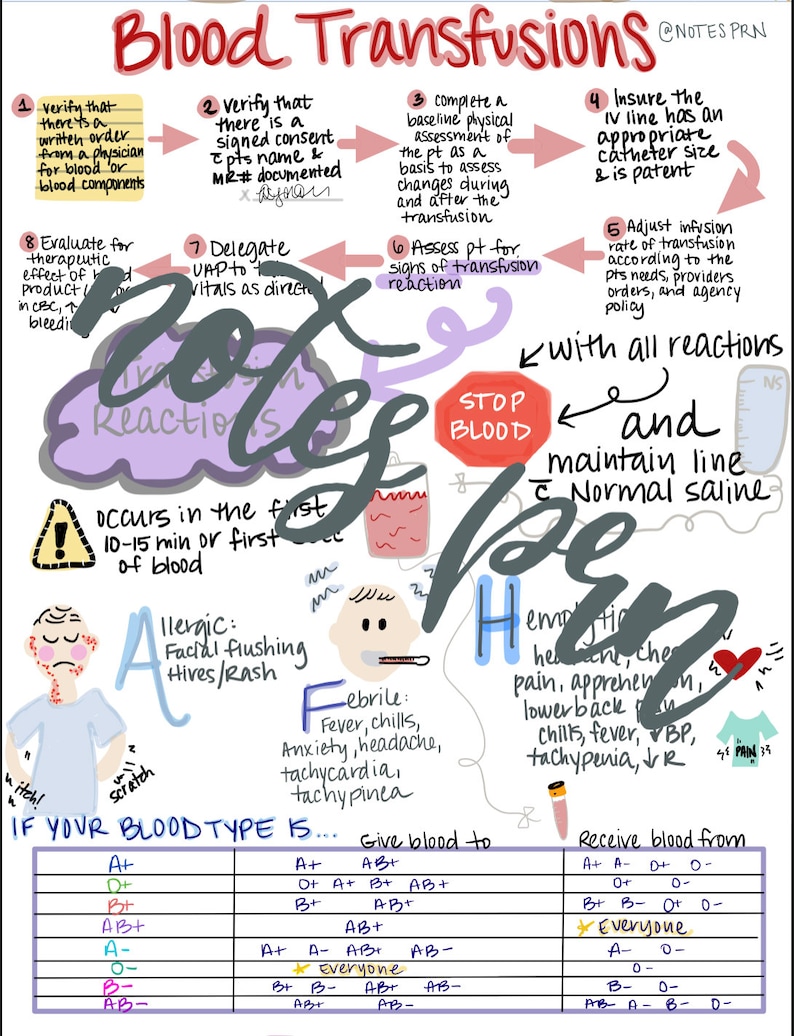 Blood Transfusions
@NOTESPRN
1 Verify that
there is a
written order
from a physician
for blood or
blood components
2 Verify that
there is a
signed consent
c̄ pts name &
MR# documented
x
3 complete a
baseline physical
assessment of
the pt as a
basis to assess
changes during
and after the
transfusion
4 Insure the
IV line has an
appropriate
catheter size
& is patent
5 Adjust infusion
rate of transfusion
according to the
pts needs, providers
orders, and agency
policy
6 Assess pt for
signs of transfusion
reaction
7 Delegate
UAP to
vitals as directed
8 Evaluate for
therapeutic
effect of blood
product
in CBC, ↑
bleeding
notes prn
Transfusion
Reactions
STOP
BLOOD
with all reactions
and
maintain line
c̄ Normal saline
NS
!
occurs in the first
10-15 min or first
of blood
Allergic:
Facial flushing
Hives/Rash
itch!
scratch
Febrile:
Fever, chills,
Anxiety, headache,
tachycardia,
tachypinea
Hemolytic
headache, chest
pain, apprehension,
lower back pain
chills, fever, ↓BP,
tachypenia, ↓R
"PAIN"
IF YOUR BLOOD TYPE IS...
Give blood to
Receive blood from
A+ A+ AB+ A+ A- O+ O-
O+ O+ A+ B+ AB+ O+ O-
B+ B+ AB+ B+ B- O+ O-
AB+ AB+ Everyone
A- A+ A- AB+ AB- A- O-
O- Everyone O-
B- B+ B- AB+ AB- B- O-
AB- AB+ AB- AB- A- B- O-